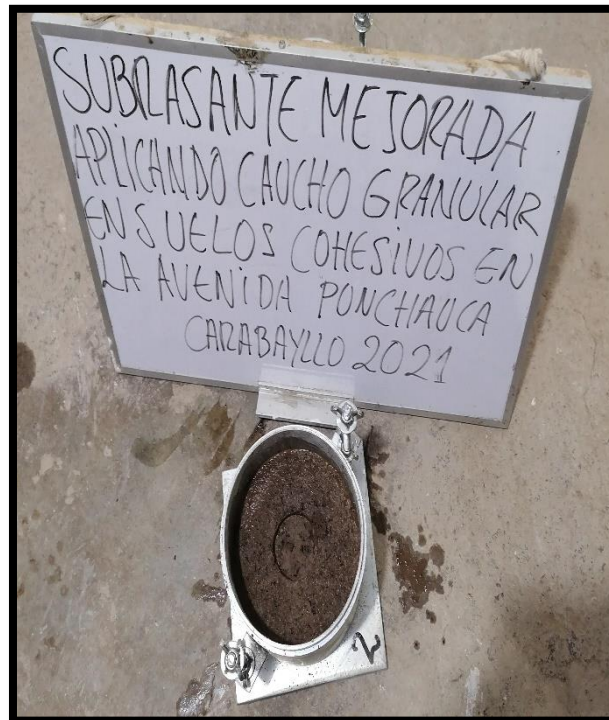 SUBRASANTE MEJORADA
APLICANDO CAUCHO GRANULAR
EN SUELOS COHESIVOS EN
LA AVENIDA PONCHAUCA
CARABAYLLO 2021
2